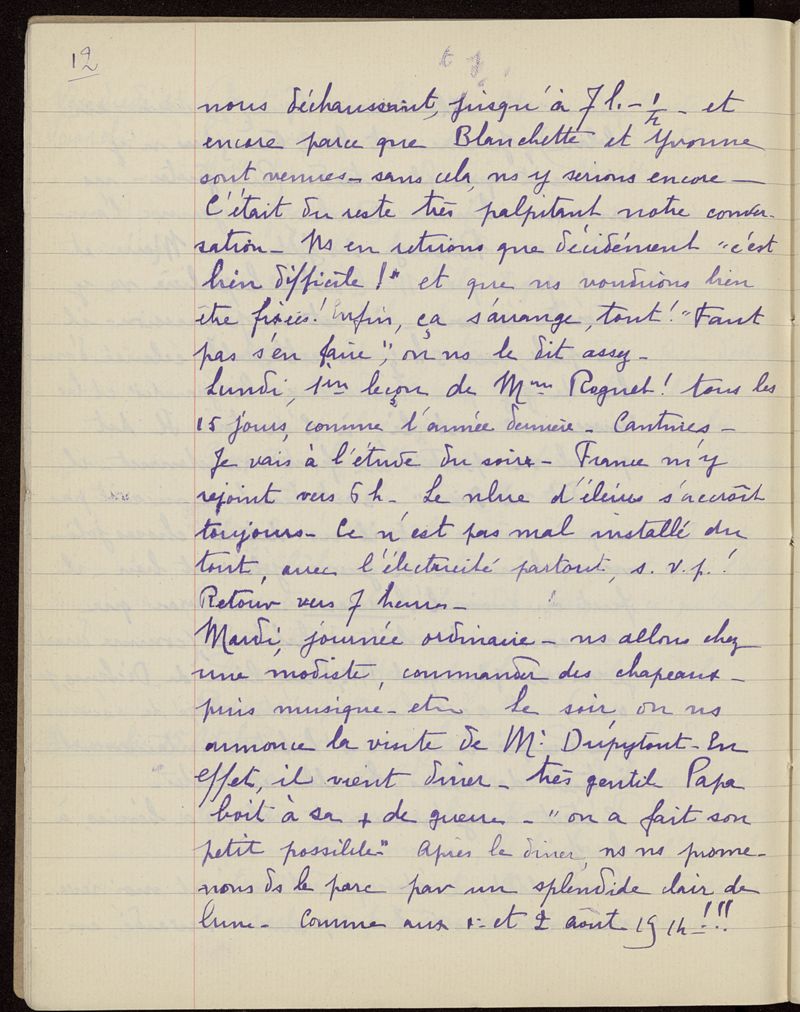 12
nous déchaussant, jusqu'à 7 h. - 1/2 - et
encore parce que Blanchette et Yvonne
sont venues - sans cela, ns y serions encore -
C'était du reste très palpitant notre conver-
sation - Ns en retirions que décidément "c'est
bien difficile !" et que ns voudrions bien
être fixées ! Enfin, ça s'arrange, tout ! "Faut
pas s'en faire", on ns le dit assez -
Lundi, 1ère leçon de Mme Roguet ! tous les
15 jours, comme l'année dernière - Cantines -
Je vais à l'étude du soir - France m'y
rejoint vers 6 h - Le nbre d'élèves s'accroît
toujours - Ce n'est pas mal installé du
tout, avec l'électricité partout, s. v. p. !
Retour vers 7 heures -
Mardi, journée ordinaire - ns allons chez
une modiste, commander des chapeaux -
puis musique - etc Le soir on ns
annonce la visite de Mr Dupytout - En
effet, il vient dîner - très gentil Papa
boit à sa + de guerre - "on a fait son
petit possible" Après le dîner, ns ns prome-
nons ds le parc par un splendide clair de
lune - Comme aux 1er et 2 août 1914 !!!